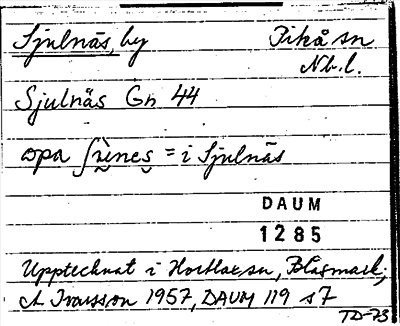 Sjulnäs, by Piteå sn
Nb.l.
Sjulnäs Gn 44
opa = i Sjulnäs
DAUM
1285
Upptecknat i Hortlax sn,
A Ivarsson 1957, DAUM 119 s7
TD-73